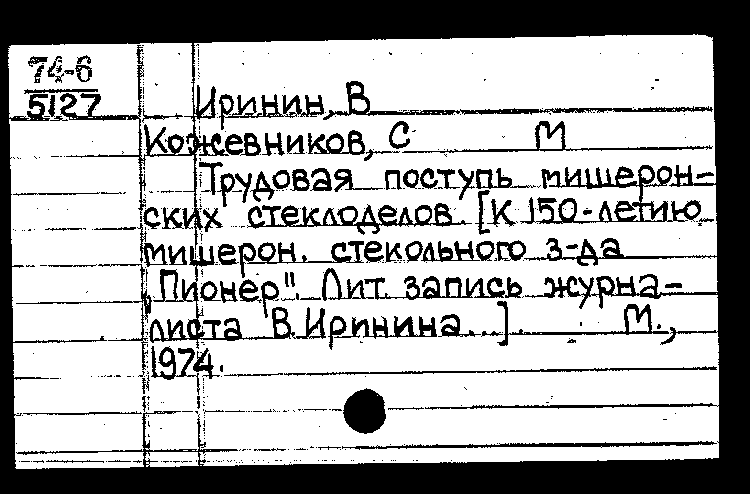 74-6
5127
Иринин, В
Кожевников, С М
Трудовая поступь мишерон-
ских стеклоделов. [К 150-летию
мишерон. стекольного з-да
„Пионер". Лит. запись журна-
листа В. Иринина...]. М.,
1974.